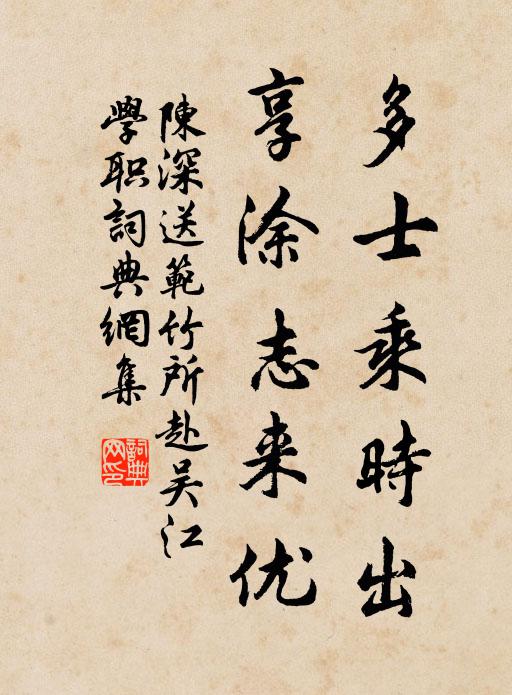 多士乘時出
享涂志来优
陳深送範竹所赴吴江
學职詞典網集
詞典网印